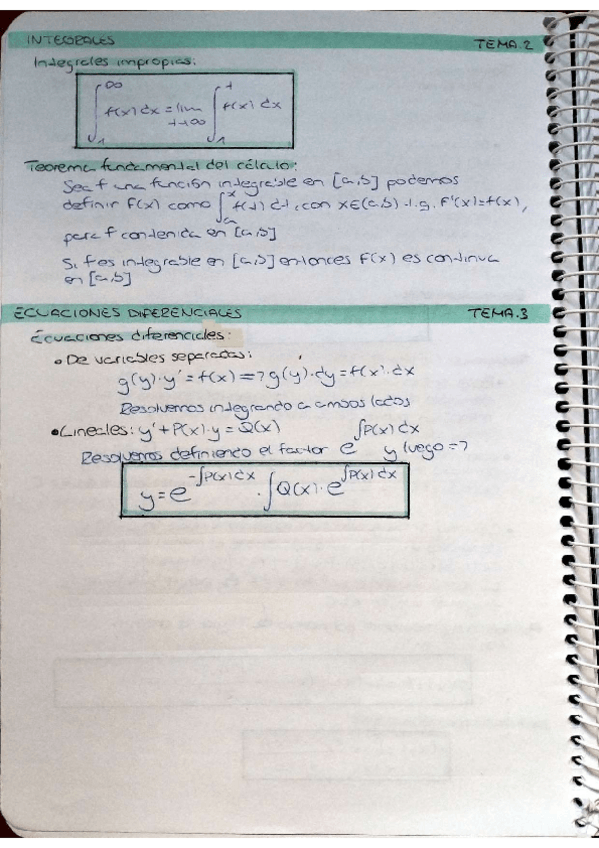 INTEGRALES TEMA.2
Integrales impropias:
∫₁^∞ f(x) dx = lim t→∞ ∫₁^t f(x) dx
Teorema fundamental del cálculo:
Sea f una función integrable en [a,b] podemos
definir F(x) como ∫ₐ^x f(t) dt, con x∈(a,b) t.q. F'(x)=f(x),
para f contenida en [a,b]
Si f es integrable en [a,b] entonces F(x) es continua
en [a,b]
ECUACIONES DIFERENCIALES TEMA.3
Ecuaciones diferenciales:
• De variables separadas:
g(y)·y' = f(x) => g(y)·dy = f(x)·dx
Resolvemos integrando a ambos lados
• Lineales: y' + P(x)·y = Q(x)
Resolvemos definiendo el factor e^∫P(x)dx y luego =>
y = e^-∫P(x)dx · ∫Q(x)·e^∫P(x)dx